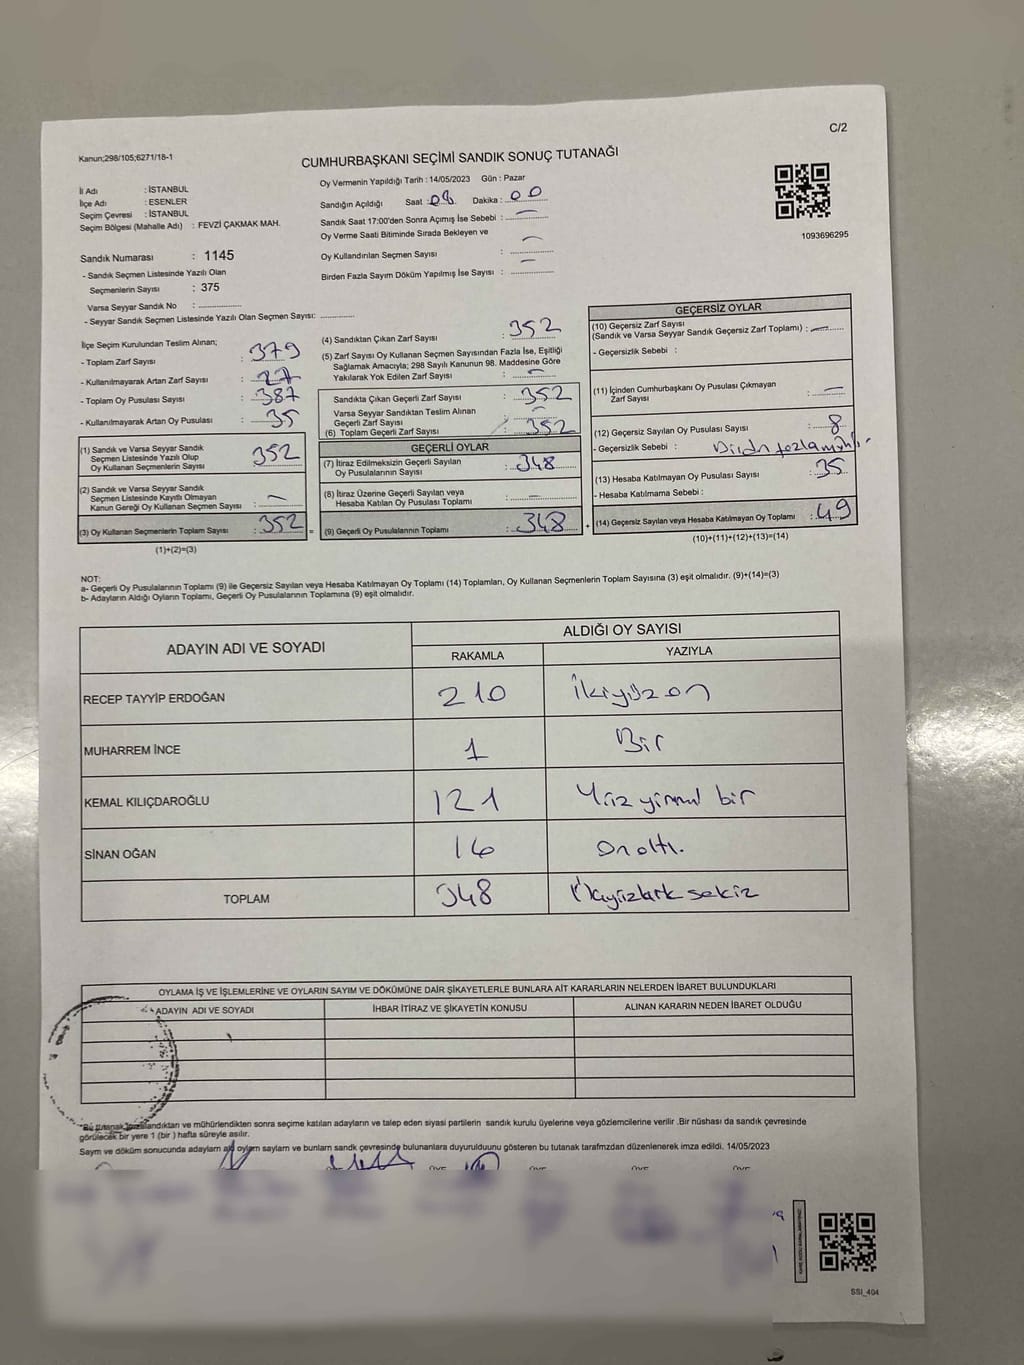 C/2
Kanun;298/105;6271/18-1
CUMHURBAŞKANI SEÇİMİ SANDIK SONUÇ TUTANAĞI
İl Adı : İSTANBUL
İlçe Adı : ESENLER
Seçim Çevresi : İSTANBUL
Seçim Bölgesi (Mahalle Adı) : FEVZİ ÇAKMAK MAH.
Sandık Numarası : 1145
- Sandık Seçmen Listesinde Yazılı Olan
Seçmenlerin Sayısı : 375
Varsa Seyyar Sandık No : ..............
- Seyyar Sandık Seçmen Listesinde Yazılı Olan Seçmen Sayısı: ............
Oy Vermenin Yapıldığı Tarih : 14/05/2023 Gün : Pazar
Sandığın Açıldığı Saat : 08 Dakika : 00
Sandık Saat 17:00'den Sonra Açımış İse Sebebi : —
Oy Verme Saati Bitiminde Sırada Bekleyen ve
Oy Kullandırılan Seçmen Sayısı : —
Birden Fazla Sayım Döküm Yapılmış İse Sayısı : —
1093696295
İlçe Seçim Kurulundan Teslim Alınan;
- Toplam Zarf Sayısı : 379
- Kullanılmayarak Artan Zarf Sayısı : 27
- Toplam Oy Pusulası Sayısı : 387
- Kullanılmayarak Artan Oy Pusulası : 35
(1) Sandık ve Varsa Seyyar Sandık
Seçmen Listesinde Yazılı Olup
Oy Kullanan Seçmenlerin Sayısı : 352
(2) Sandık ve Varsa Seyyar Sandık
Seçmen Listesinde Kayıtlı Olmayan
Kanun Gereği Oy Kullanan Seçmen Sayısı : —
(3) Oy Kullanan Seçmenlerin Toplam Sayısı : 352 =
(1)+(2)=(3)
(4) Sandıktan Çıkan Zarf Sayısı : 352
(5) Zarf Sayısı Oy Kullanan Seçmen Sayısından Fazla İse, Eşitliği
Sağlamak Amacıyla; 298 Sayılı Kanunun 98. Maddesine Göre
Yakılarak Yok Edilen Zarf Sayısı : —
Sandıkta Çıkan Geçerli Zarf Sayısı : 352
Varsa Seyyar Sandıktan Teslim Alınan
Geçerli Zarf Sayısı : —
(6) Toplam Geçerli Zarf Sayısı : 352
GEÇERLİ OYLAR
(7) İtiraz Edilmeksizin Geçerli Sayılan
Oy Pusulalarının Sayısı : 348
(8) İtiraz Üzerine Geçerli Sayılan veya
Hesaba Katılan Oy Pusulası Toplamı : —
(9) Geçerli Oy Pusulalarının Toplamı : 348 +
GEÇERSİZ OYLAR
(10) Geçersiz Zarf Sayısı
(Sandık ve Varsa Seyyar Sandık Geçersiz Zarf Toplamı) : —
- Geçersizlik Sebebi :
(11) İçinden Cumhurbaşkanı Oy Pusulası Çıkmayan
Zarf Sayısı : —
(12) Geçersiz Sayılan Oy Pusulası Sayısı : 8
- Geçersizlik Sebebi :
(13) Hesaba Katılmayan Oy Pusulası Sayısı : 35
- Hesaba Katılmama Sebebi :
(14) Geçersiz Sayılan veya Hesaba Katılmayan Oy Toplamı : 49
(10)+(11)+(12)+(13)=(14)
NOT:
a- Geçerli Oy Pusulalarının Toplamı (9) ile Geçersiz Sayılan veya Hesaba Katılmayan Oy Toplamı (14) Toplamları, Oy Kullanan Seçmenlerin Toplam Sayısına (3) eşit olmalıdır. (9)+(14)=(3)
b- Adayların Aldığı Oyların Toplamı, Geçerli Oy Pusulalarının Toplamına (9) eşit olmalıdır.
ADAYIN ADI VE SOYADI ALDIĞI OY SAYISI
RAKAMLA YAZIYLA
RECEP TAYYİP ERDOĞAN 210 İkiyüzon
MUHARREM İNCE 1 Bir
KEMAL KILIÇDAROĞLU 121 Yüz yirmi bir
SİNAN OĞAN 16 Onaltı.
TOPLAM 348
OYLAMA İŞ VE İŞLEMLERİNE VE OYLARIN SAYIM VE DÖKÜMÜNE DAİR ŞİKAYETLERLE BUNLARA AİT KARARLARIN NELERDEN İBARET BULUNDUKLARI
ADAYIN ADI VE SOYADI İHBAR İTİRAZ VE ŞİKAYETİN KONUSU ALINAN KARARIN NEDEN İBARET OLDUĞU
"Bu tutanak imzalandıktan ve mühürlendikten sonra seçime katılan adayların ve talep eden siyasi partilerin sandık kurulu üyelerine veya gözlemcilerine verilir .Bir nüshası da sandık çevresinde
görülecek bir yere 1 (bir ) hafta süreyle asılır.
Sayım ve döküm sonucunda adayların ald oyların sayıları ve bunların sandk çevresinde bulunanlara duyurulduğunu gösteren bu tutanak tarafımızdan düzenlenerek imza edildi. 14/05/2023
SSI_404